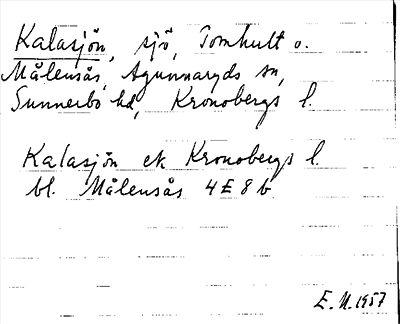 Kalasjön, sjö, Tomhult o.
Målensås, Agunnaryds sn,
Sunnerbo hd, Kronobergs l.
Kalasjön ek Kronobergs l.
bl. Målensås 4 E 8 b
E.N. 1957